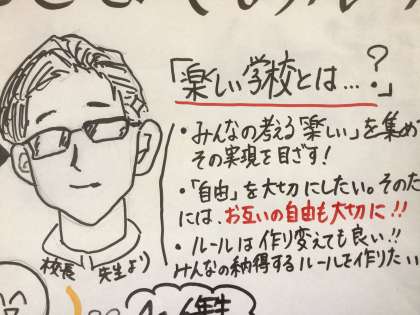 「楽しい学校とは…?」
・みんなの考える「楽しい」を集め
その実現を目ざす!
・「自由」を大切にしたい。そのた
には、お互いの自由も大切に!!
・ルールは作り変えても良い!!
みんなの納得するルールを作りたい
校長先生より
6年生